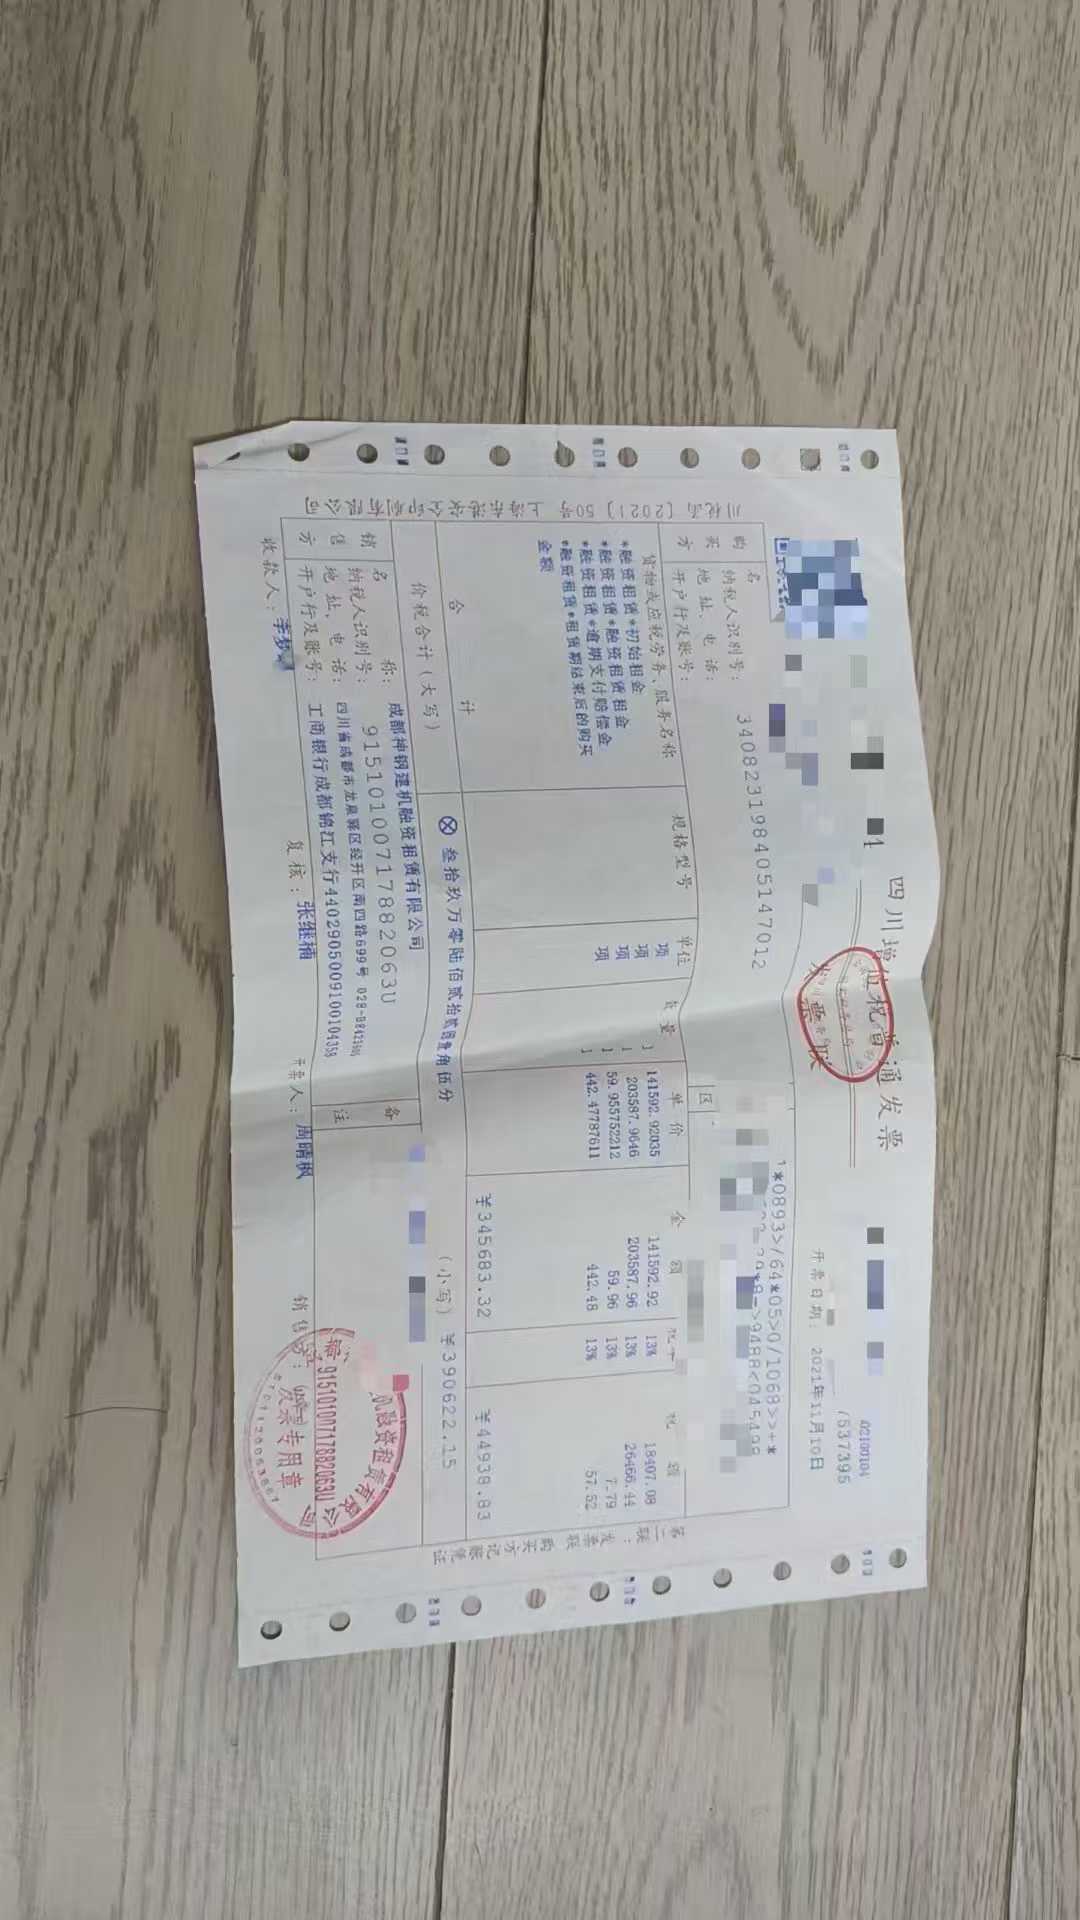 四川增值税普通发票
发票联
02100104
537395
开票日期: 2021年11月10日
川税函[2021]50号 上海东港安全印刷有限公司
购买方
名
纳税人识别号: 340823198405147012
地址、电话:
开户行及账号:
区
*0893>/64*05>0/1068>>+*
->9488<045498
货物或应税劳务、服务名称 规格型号 单位 数量 单价 金额 税率 税额
*融资租赁*初始租金 项 1 141592.92035 141592.92 13% 18407.08
*融资租赁*融资租赁租金 项 1 203587.9646 203587.96 13% 26466.44
*融资租赁*逾期支付赔偿金 项 1 59.955752212 59.96 13% 7.79
*融资租赁*租赁期结束后的购买 项 1 442.47787611 442.48 13% 57.52
金额
合计 ¥345683.32 ¥44938.83
价税合计(大写) ⊗叁拾玖万零陆佰贰拾贰圆壹角伍分 (小写) ¥390622.15
销售方
名称: 成都神钢建机融资租赁有限公司
纳税人识别号: 91510100717882063U
地址、电话: 四川省成都市龙泉驿区经开区南四路699号 028-
开户行及账号: 工商银行成都锦江支行4402905009100104358
备注
收款人: 李梦 复核: 张继楠 开票人: 周晴枫 销售方:
第二联: 发票联 购买方记账凭证
机融资租赁有限公司
91510100717882063U
发票专用章